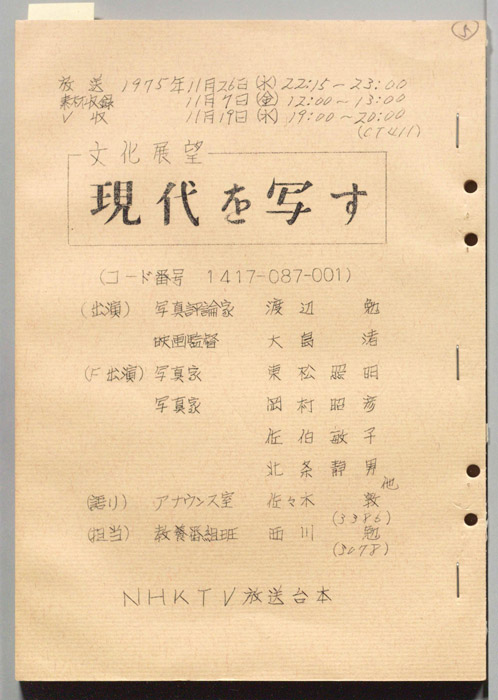 5
放送 1975年11月26日(水) 22:15〜23:00
素材収録 11月7日(金) 12:00〜13:00
V収 11月19日(水) 19:00〜20:00
(CT411)
文化展望
現代を写す
(コード番号 1417-087-001)
(出演) 写真評論家 渡辺 勉
映画監督 大島 渚
(F出演) 写真家 東松照明
写真家 岡村昭彦
佐伯敏子
北条静男
他
(語り) アナウンス室 佐々木 敦
(3386)
(担当) 教養番組班 西川 勉
(3078)
NHKTV放送台本